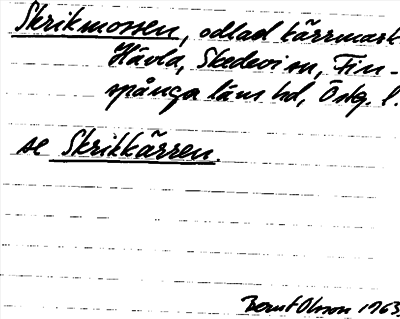 Skrikmossen, odlad kärrmark.
Hävla, Skedevi sn, Fin-
spånga läns hd, Östg. l.
se Skrikkärren.
Bernt Olsson 1963.